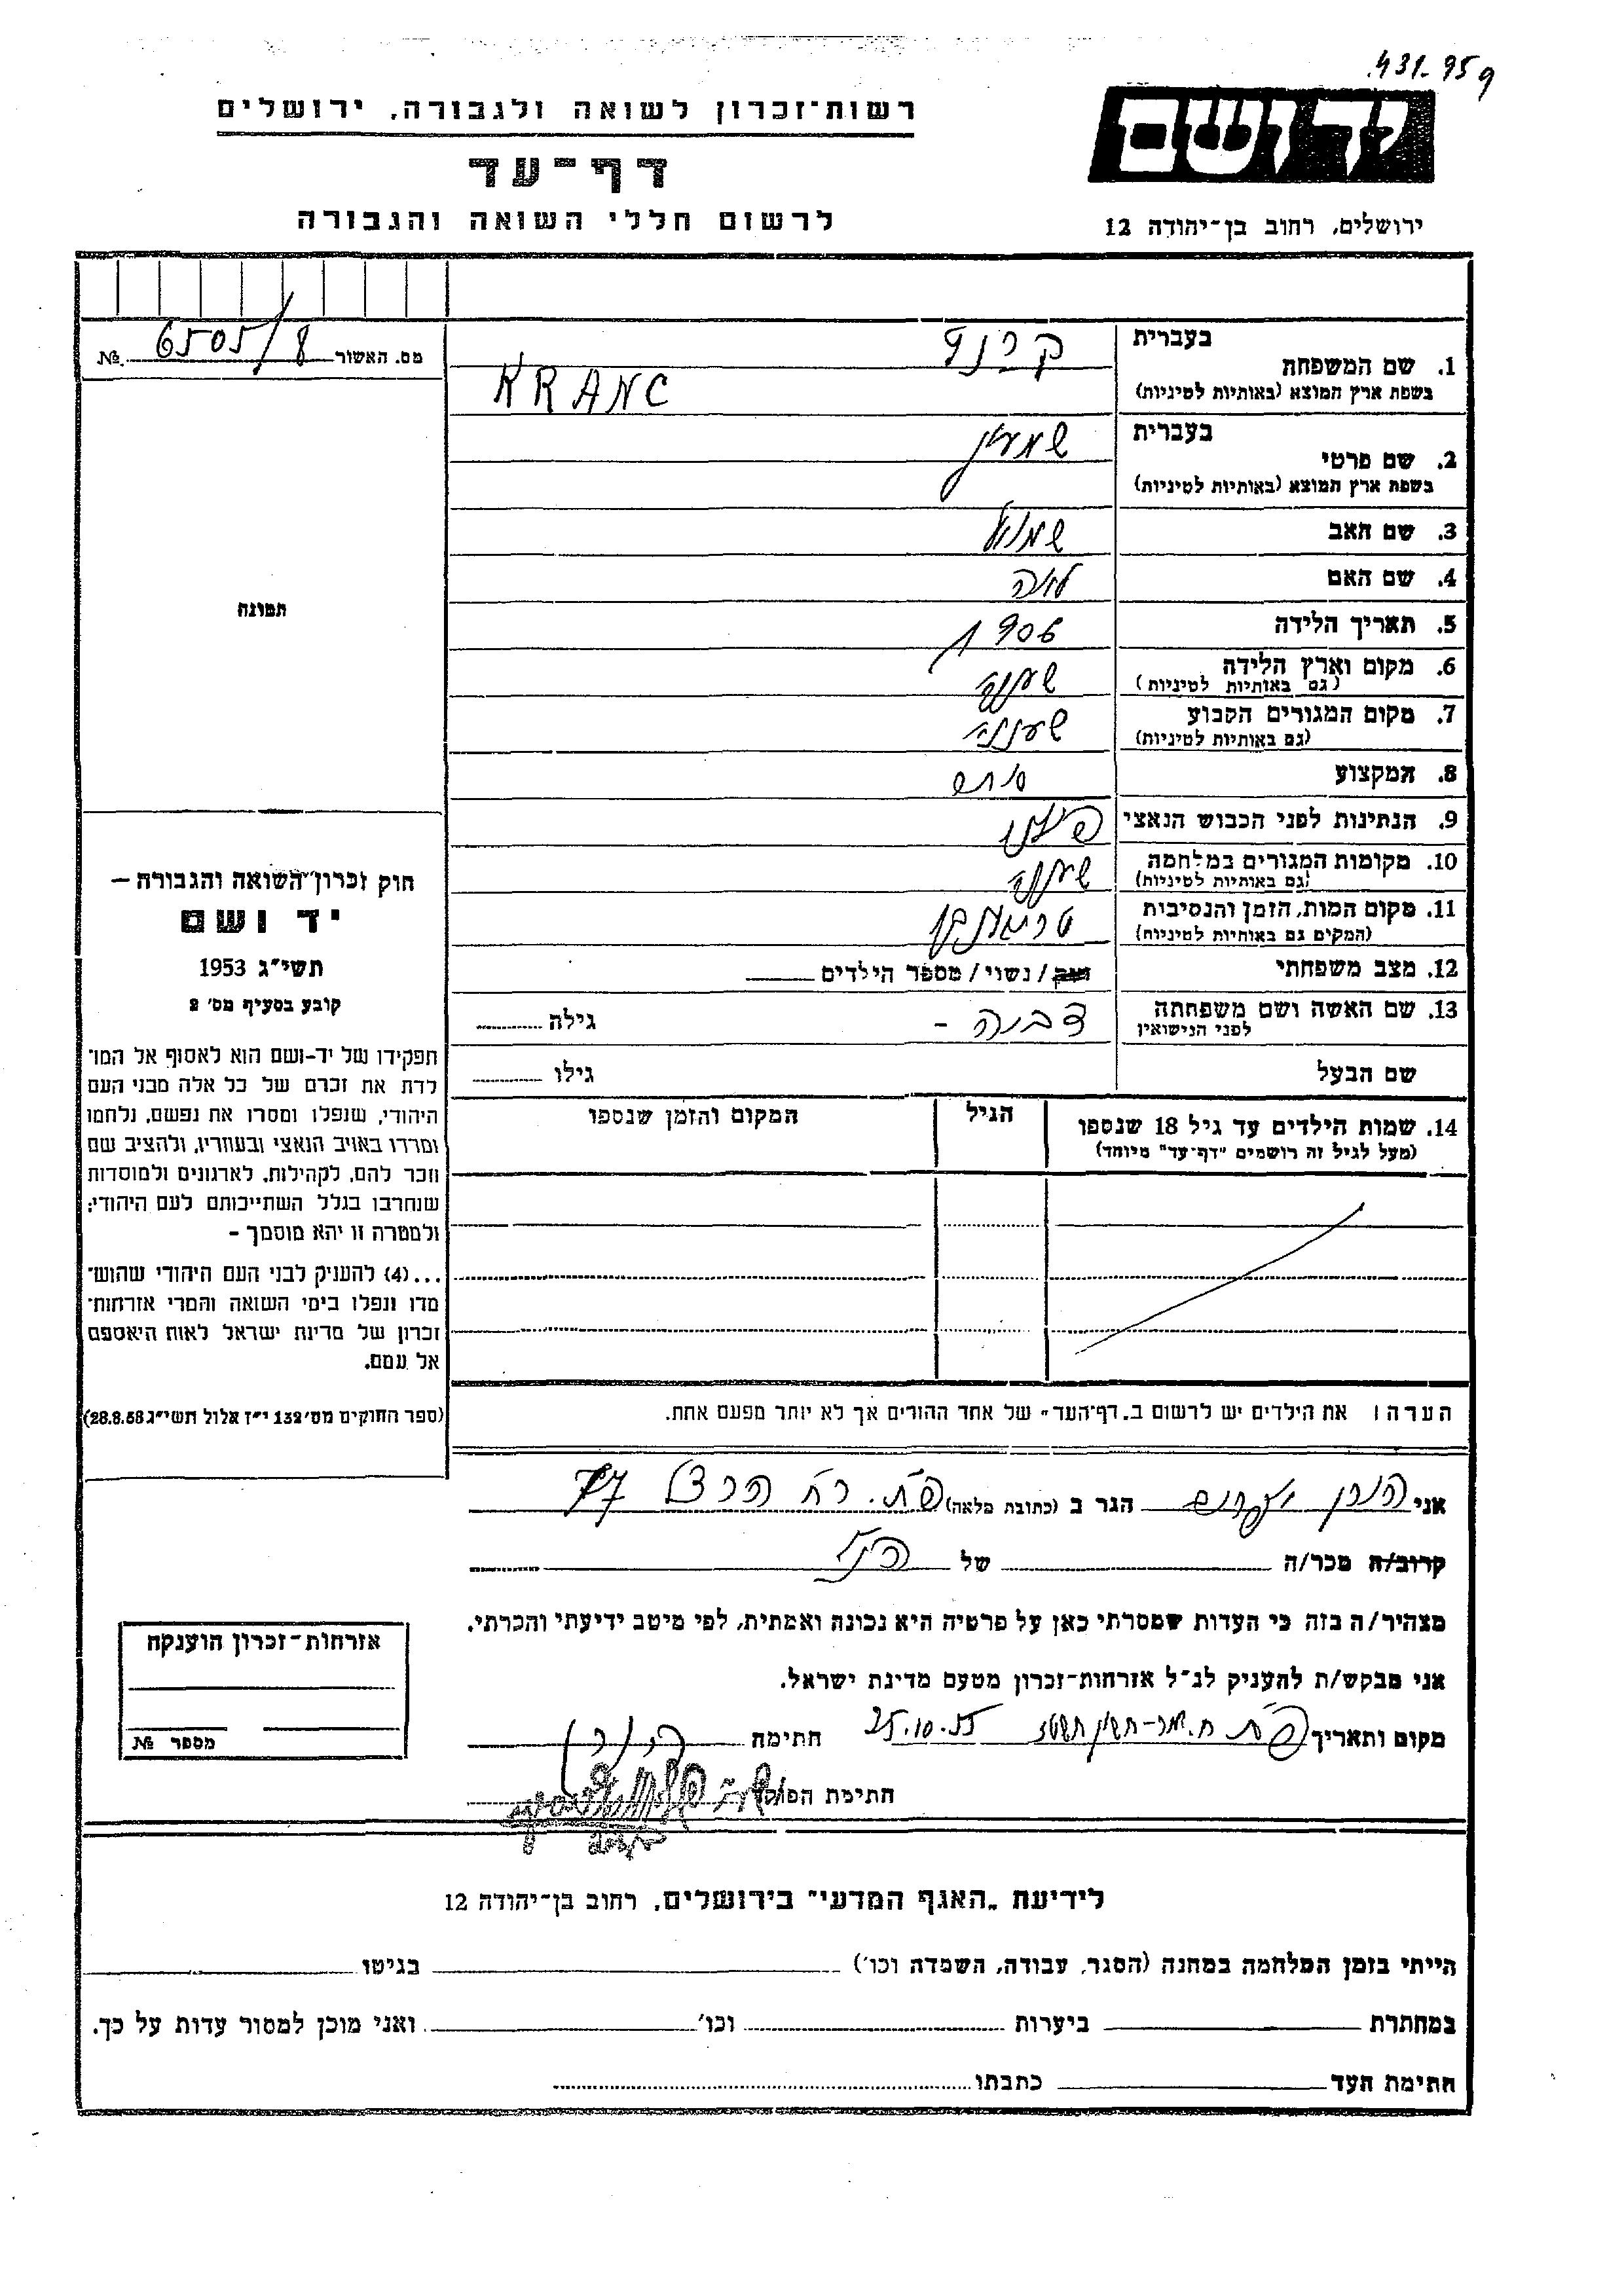 431-959
יד ושם
רשות־זכרון לשואה ולגבורה, ירושלים
דף־עד
לרשום חללי השואה והגבורה
ירושלים, רחוב בן־יהודה 12
מס. האשור 6505/8 №
בעברית
1. שם המשפחה קרנץ
בשפת ארץ המוצא (באותיות לטיניות) KRANC
בעברית
2. שם פרטי שמעון
בשפת ארץ המוצא (באותיות לטיניות)
3. שם האב שמואל
4. שם האם
5. תאריך הלידה 1906
6. מקום וארץ הלידה
(גם באותיות לטיניות)
7. מקום המגורים הקבוע
(גם באותיות לטיניות)
8. המקצוע
9. הנתינות לפני הכבוש הנאצי
10. מקומות המגורים במלחמה
(גם באותיות לטיניות)
11. מקום המות, הזמן והנסיבות
(המקים גם באותיות לטיניות)
12. מצב משפחתי רווק / נשוי / מספר הילדים
13. שם האשה ושם משפחתה
לפני הנישואין
גילה
שם הבעל
גילו
14. שמות הילדים עד גיל 18 שנספו
(מעל לגיל זה רושמים "דף־עד" מיוחד)
הגיל
המקום והזמן שנספו
תמונה
חוק זכרון השואה והגבורה —
יד ושם
תשי"ג 1953
קובע בסעיף מס' 2
תפקידו של יד-ושם הוא לאסוף אל המו־
לדת את זכרם של כל אלה מבני העם
היהודי, שנפלו ומסרו את נפשם, נלחמו
ומרדו באויב הנאצי ובעוזריו, ולהציב שם
וזכר להם, לקהילות, לארגונים ולמוסדות
שנחרבו בגלל השתייכותם לעם היהודי;
ולמטרה זו יהא מוסמך –
...(4) להעניק לבני העם היהודי שהוש־
מדו ונפלו בימי השואה והמרי אזרחות־
זכרון של מדינת ישראל לאות היאספם
אל עמם.
(ספר החוקים מס' 132 י"ז אלול תשי"ג 28.8.53)
הערה: את הילדים יש לרשום ב„דף־העד" של אחד ההורים אך לא יותר מפעם אחת.
אני הגר ב (כתובת מלאה) פ"ת. רח הרצל 77
קרוב/ה מכר/ה של
מצהיר/ה בזה כי העדות שמסרתי כאן על פרטיה היא נכונה ואמתית, לפי מיטב ידיעתי והכרתי.
אני מבקש/ת להעניק לנ"ל אזרחות־זכרון מטעם מדינת ישראל.
מקום ותאריך פ"ת 25.10.55 חתימה
חתימת הפוקד
אזרחות־זכרון הוענקה
מספר №
לידיעת „האגף המדעי" בירושלים, רחוב בן־יהודה 12
הייתי בזמן המלחמה במחנה (הסגר, עבודה, השמדה וכו') בגיטו
במחתרת ביערות וכו' ואני מוכן למסור עדות על כך.
חתימת העד כתבתו